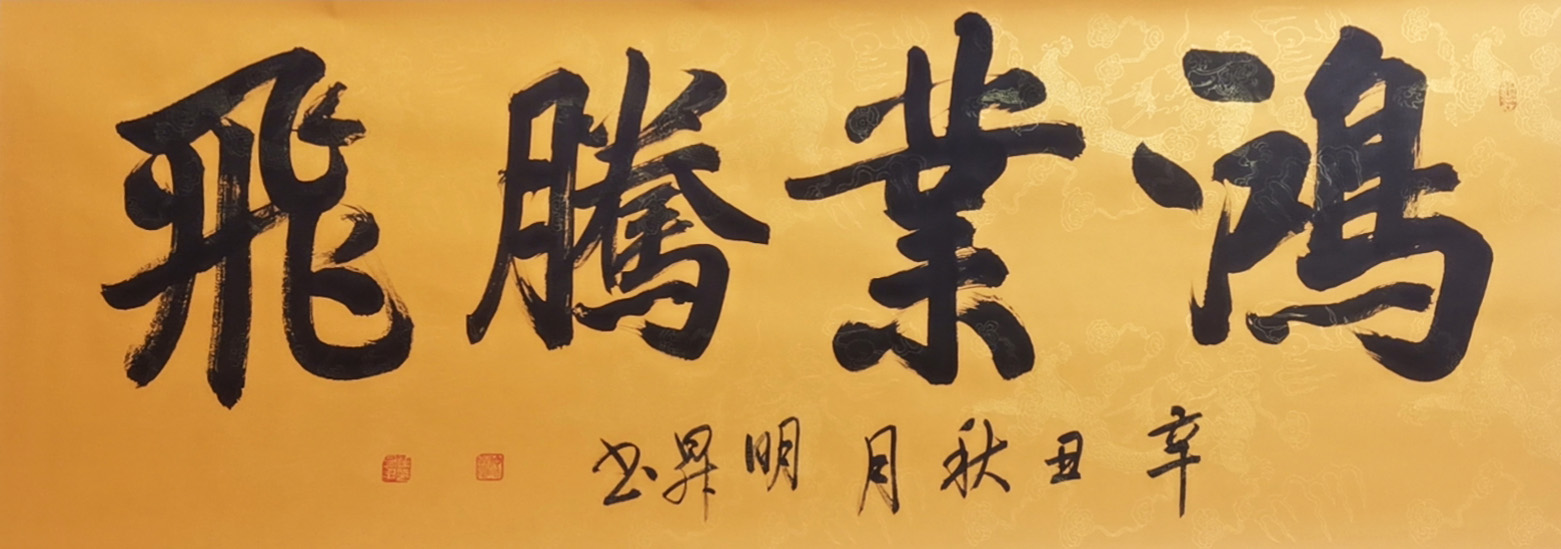 鴻業騰飛
辛丑秋月明昇书